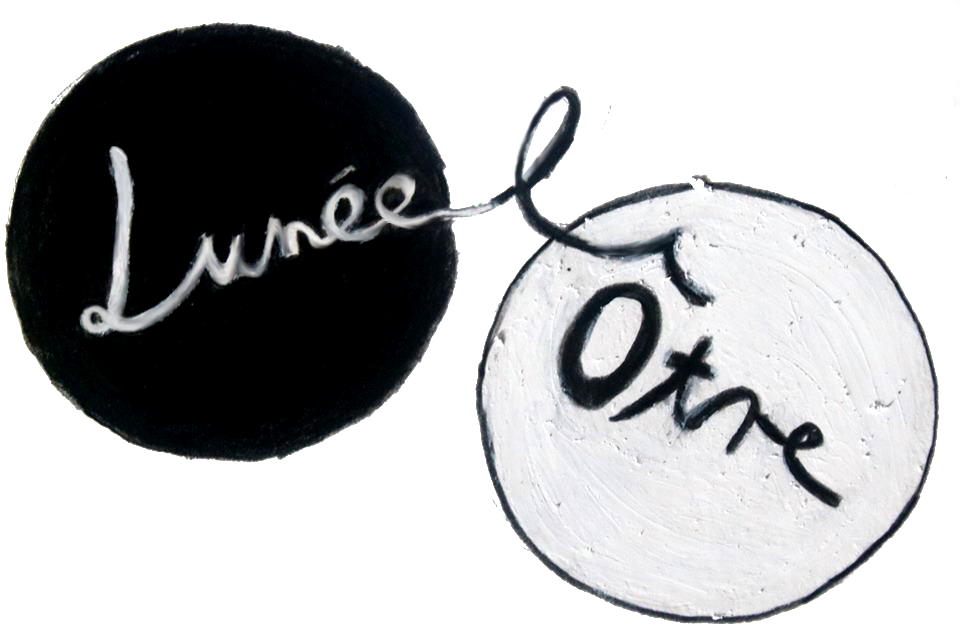 Lunée l
Ôtre